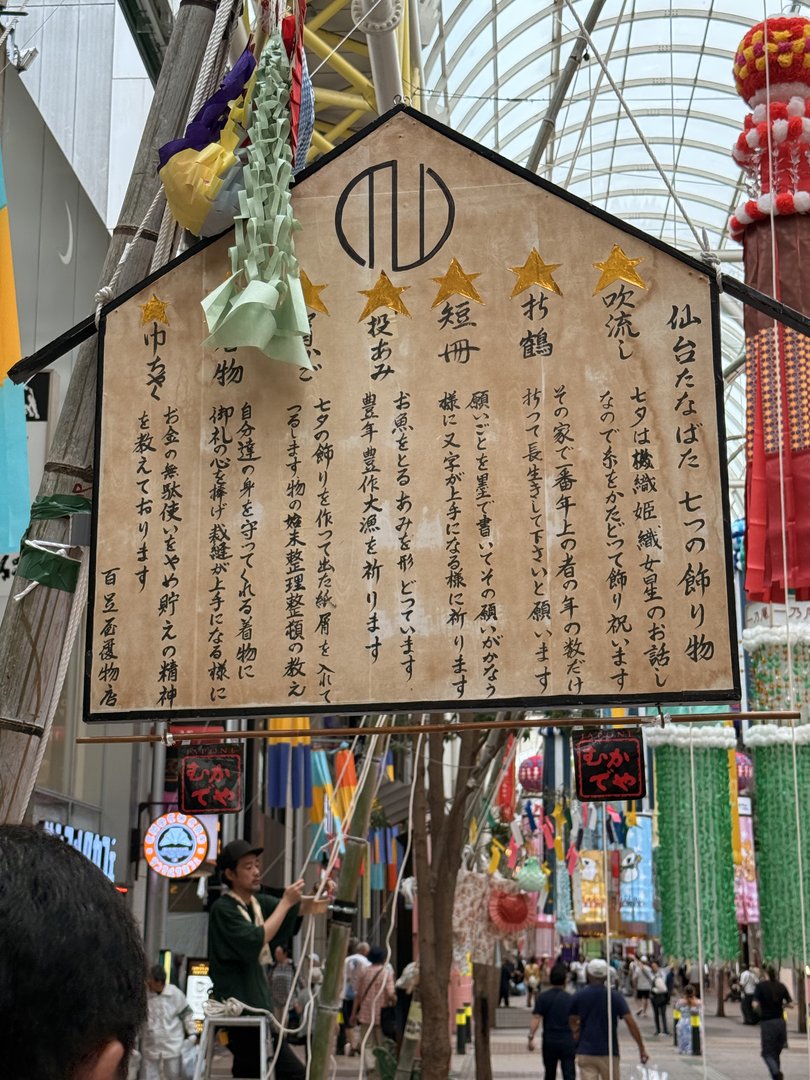 仙台たなばた 七つの飾り物
吹流し
七夕は機織姫 織女星のお話し
なので糸をかたどって飾り祝います
折鶴
その家で一番年上の者の年の数だけ
折って長生きして下さいと願います
短冊
願いごとを墨で書いてその願いがかなう
様に又字が上手になる様に祈ります
投あみ
お魚をとるあみを形どっています
豊年豊作大漁を祈ります
ご
七夕の飾りを作って出た紙屑を入れて
つるします物の始末整理整頓の教え
物
自分達の身を守ってくれる着物に
御礼の心を捧げ裁縫が上手になる様に
巾ちゃく
お金の無駄使いをやめ貯えの精神
を教えております
百足屋履物店
JAPONE
むかでや
JAPONE
むかでや